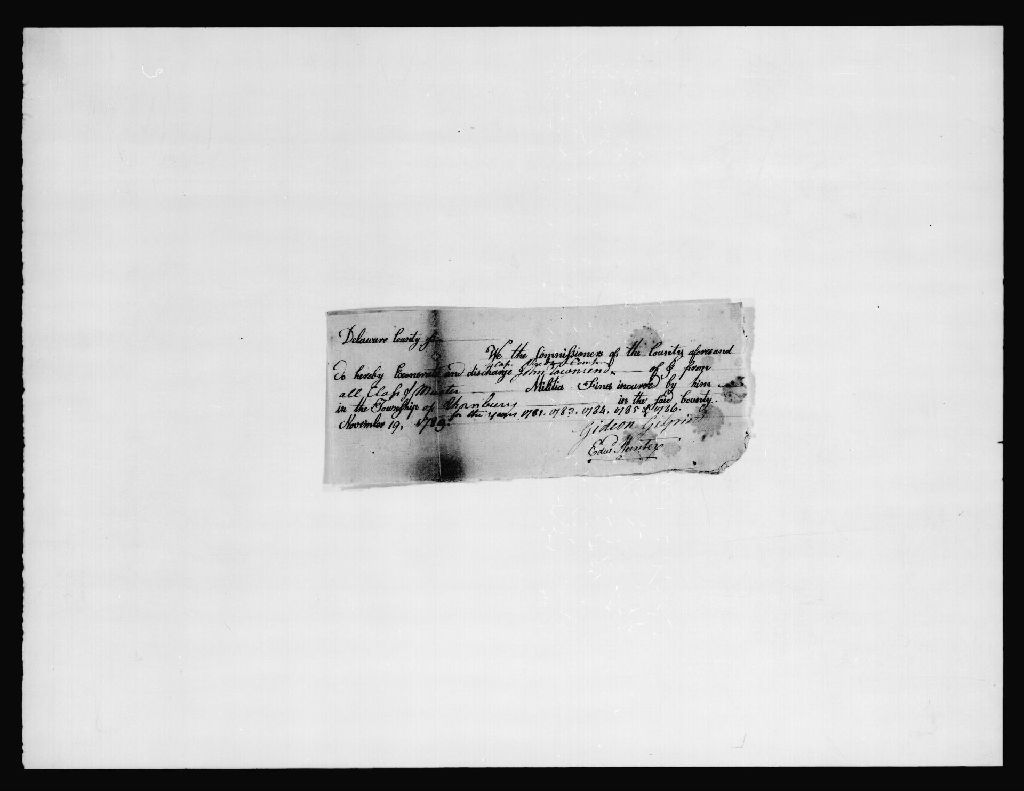 Delaware County ss.
We the Commissioners of the County aforesaid
do hereby Exonerate and discharge John Townsend of & from
all Class of Muster Militia Fines incurred by him
in the Township of Thornbury in the said County
for the years 1781. 1783. 1784. 1785 & 1786.
November 19, 1789.
Gideon Gilpin
Edwd Hunter